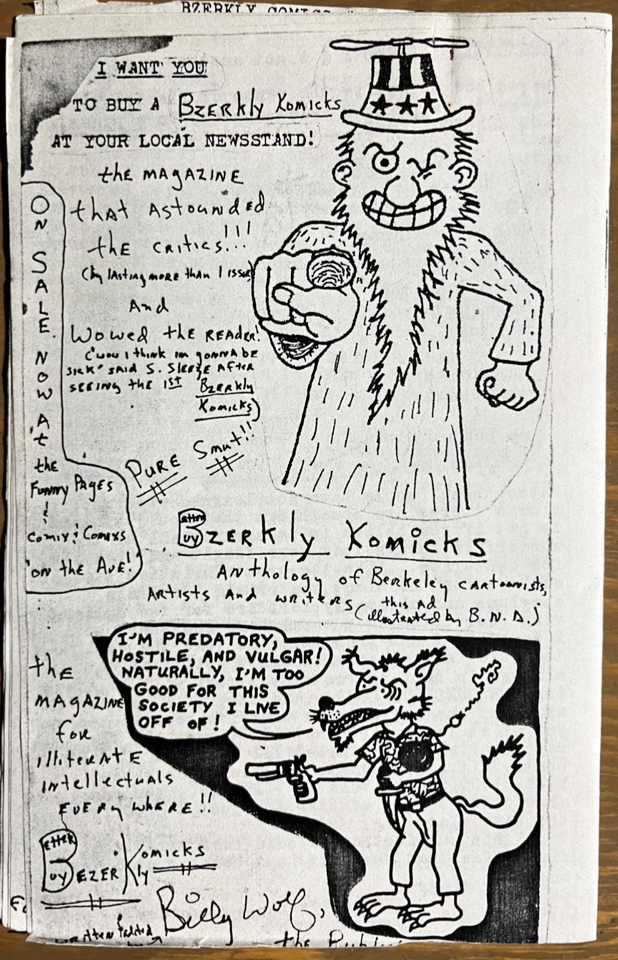 BZERKLY COMICS
I WANT YOU
TO BUY A Bzerkly Komicks
AT YOUR LOCAL NEWSSTAND!
the MAGAZINE
that Astounded
the critics!!!
(by lasting more than 1 issue)
And
Wowed the READER!
("wow I think im gonna be
sick" said S. Sleeze After
seeing the 1st Bzerkly
Komicks)
Pure Smut!!
On Sale Now At
the
Funny Pages
&
Comix & Comixs
on the Ave!
Better Buy Bzerkly Komicks
Anthology of Berkeley cartoonists,
Artists And writers
(this Ad
illustrated by B.N.D.)
I'M PREDATORY,
HOSTILE, AND VULGAR!
NATURALLY, I'M TOO
GOOD FOR THIS
SOCIETY I LIVE
OFF OF!
the
MAGAZINE
for
illiterate
intellectuals
Every where!!
Better Buy
Bezerkly Komicks
Billy Wolf,
written & edited
the